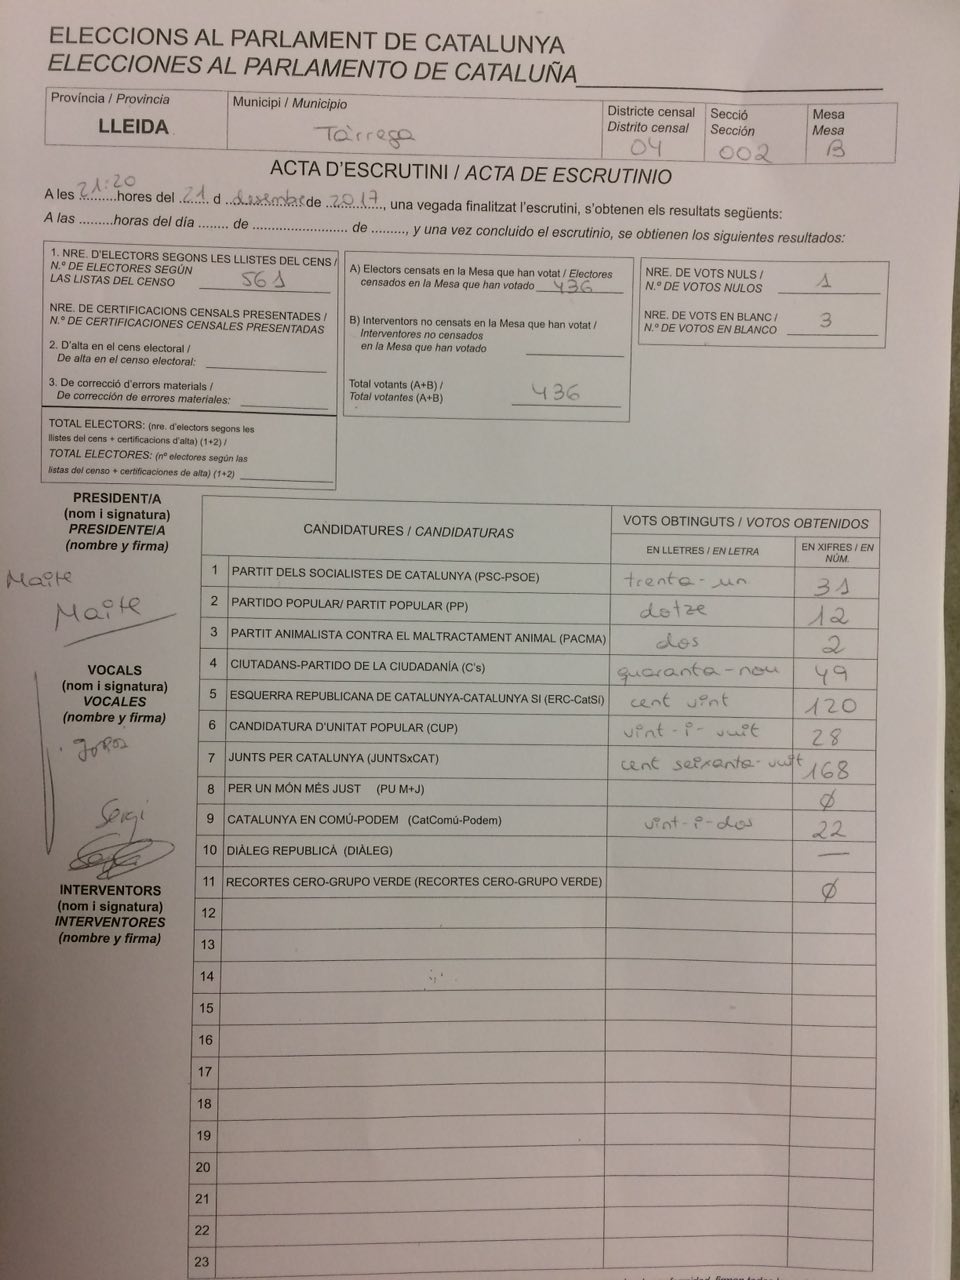 ELECCIONS AL PARLAMENT DE CATALUNYA
ELECCIONES AL PARLAMENTO DE CATALUÑA
Província / Provincia
LLEIDA
Municipi / Municipio
Tàrrega
Districte censal
Distrito censal
04
Secció
Sección
002
Mesa
Mesa
B
ACTA D'ESCRUTINI / ACTA DE ESCRUTINIO
A les 21:20 hores del 21 d desembre de 2017, una vegada finalitzat l'escrutini, s'obtenen els resultats següents:
A las .........horas del día ........ de ......................... de ........., y una vez concluido el escrutinio, se obtienen los siguientes resultados:
1. NRE. D'ELECTORS SEGONS LES LLISTES DEL CENS /
N.º DE ELECTORES SEGÚN
LAS LISTAS DEL CENSO 561
NRE. DE CERTIFICACIONS CENSALS PRESENTADES /
N.º DE CERTIFICACIONES CENSALES PRESENTADAS
2. D'alta en el cens electoral /
De alta en el censo electoral:
3. De correcció d'errors materials /
De corrección de errores materiales:
TOTAL ELECTORS: (nre. d'electors segons les
llistes del cens + certificacions d'alta) (1+2) /
TOTAL ELECTORES: (nº electores según las
listas del censo + certificaciones de alta) (1+2)
A) Electors censats en la Mesa que han votat / Electores
censados en la Mesa que han votado 436
B) Interventors no censats en la Mesa que han votat /
Interventores no censados
en la Mesa que han votado
Total votants (A+B) /
Total votantes (A+B) 436
NRE. DE VOTS NULS /
N.º DE VOTOS NULOS 1
NRE. DE VOTS EN BLANC /
N.º DE VOTOS EN BLANCO 3
PRESIDENT/A
(nom i signatura)
PRESIDENTE/A
(nombre y firma)
Maite
Maite
VOCALS
(nom i signatura)
VOCALES
(nombre y firma)
Sergi
INTERVENTORS
(nom i signatura)
INTERVENTORES
(nombre y firma)
CANDIDATURES / CANDIDATURAS
VOTS OBTINGUTS / VOTOS OBTENIDOS
EN LLETRES / EN LETRA
EN XIFRES / EN
NÚM.
1 PARTIT DELS SOCIALISTES DE CATALUNYA (PSC-PSOE) trenta-un 31
2 PARTIDO POPULAR/ PARTIT POPULAR (PP) dotze 12
3 PARTIT ANIMALISTA CONTRA EL MALTRACTAMENT ANIMAL (PACMA) dos 2
4 CIUTADANS-PARTIDO DE LA CIUDADANÍA (C's) quaranta-nou 49
5 ESQUERRA REPUBLICANA DE CATALUNYA-CATALUNYA SI (ERC-CatSí) cent vint 120
6 CANDIDATURA D'UNITAT POPULAR (CUP) vint-i-vuit 28
7 JUNTS PER CATALUNYA (JUNTSxCAT) cent seixanta-vuit 168
8 PER UN MÓN MÉS JUST (PU M+J) Ø
9 CATALUNYA EN COMÚ-PODEM (CatComú-Podem) vint-i-dos 22
10 DIÀLEG REPUBLICÀ (DIÀLEG) —
11 RECORTES CERO-GRUPO VERDE (RECORTES CERO-GRUPO VERDE) Ø
12
13
14
15
16
17
18
19
20
21
22
23